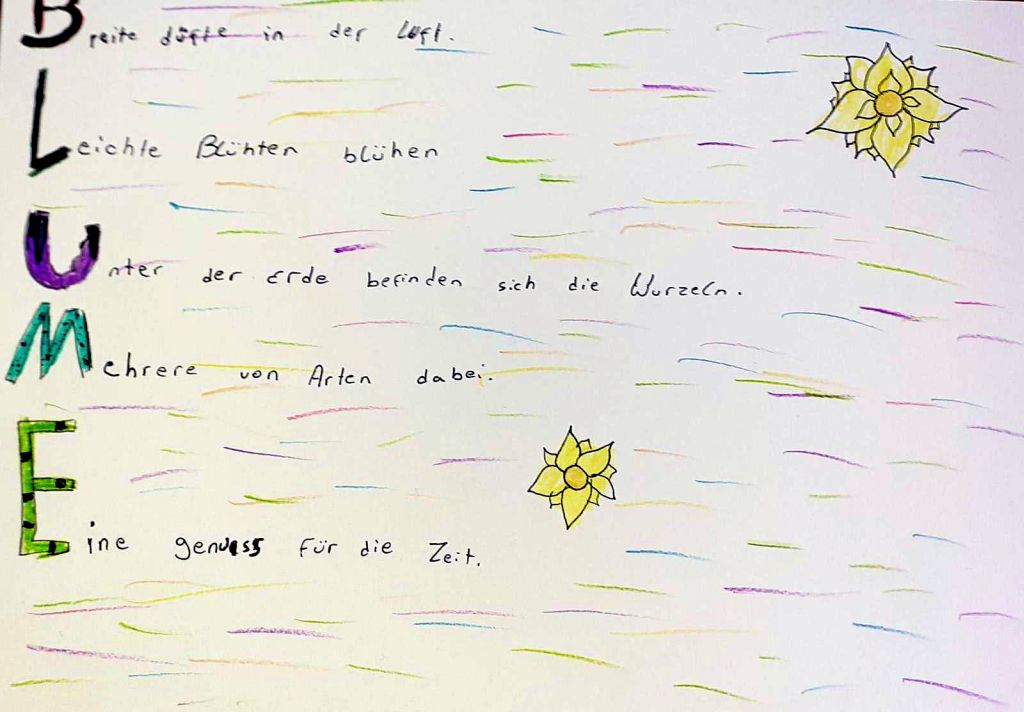 Breite düfte in der Luft.
Leichte Blühten blühen
Unter der Erde befinden sich die Wurzeln.
Mehrere von Arten dabei.
Eine genuss für die Zeit.